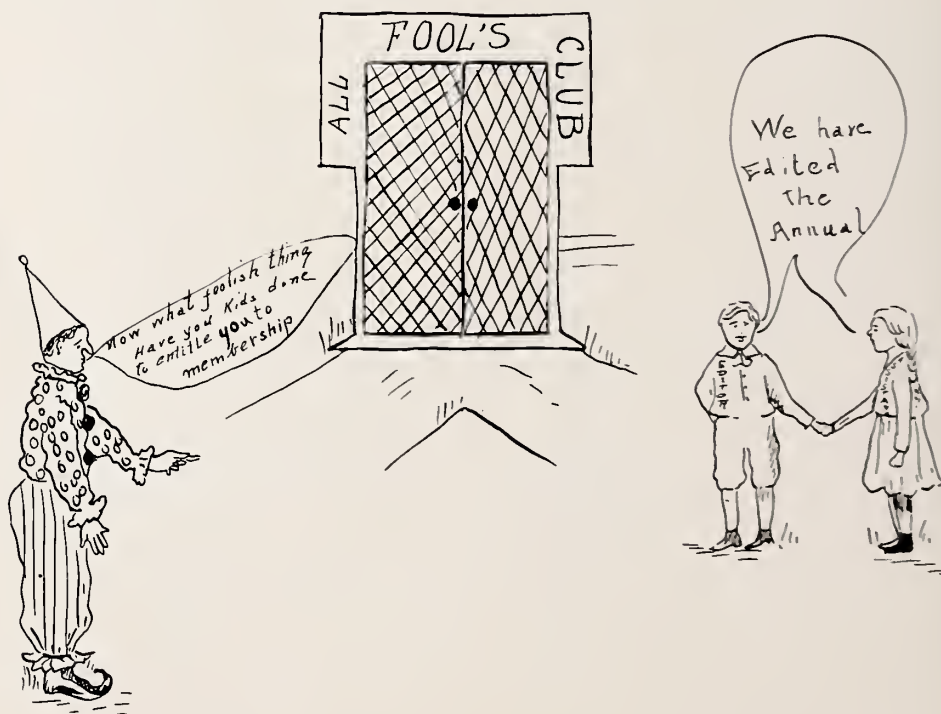 ALL FOOL'S CLUB
Now what foolish thing
Have you Kids done
to entitle you to
membership
We have
Edited
The
Annual
EDITOR
STAFF